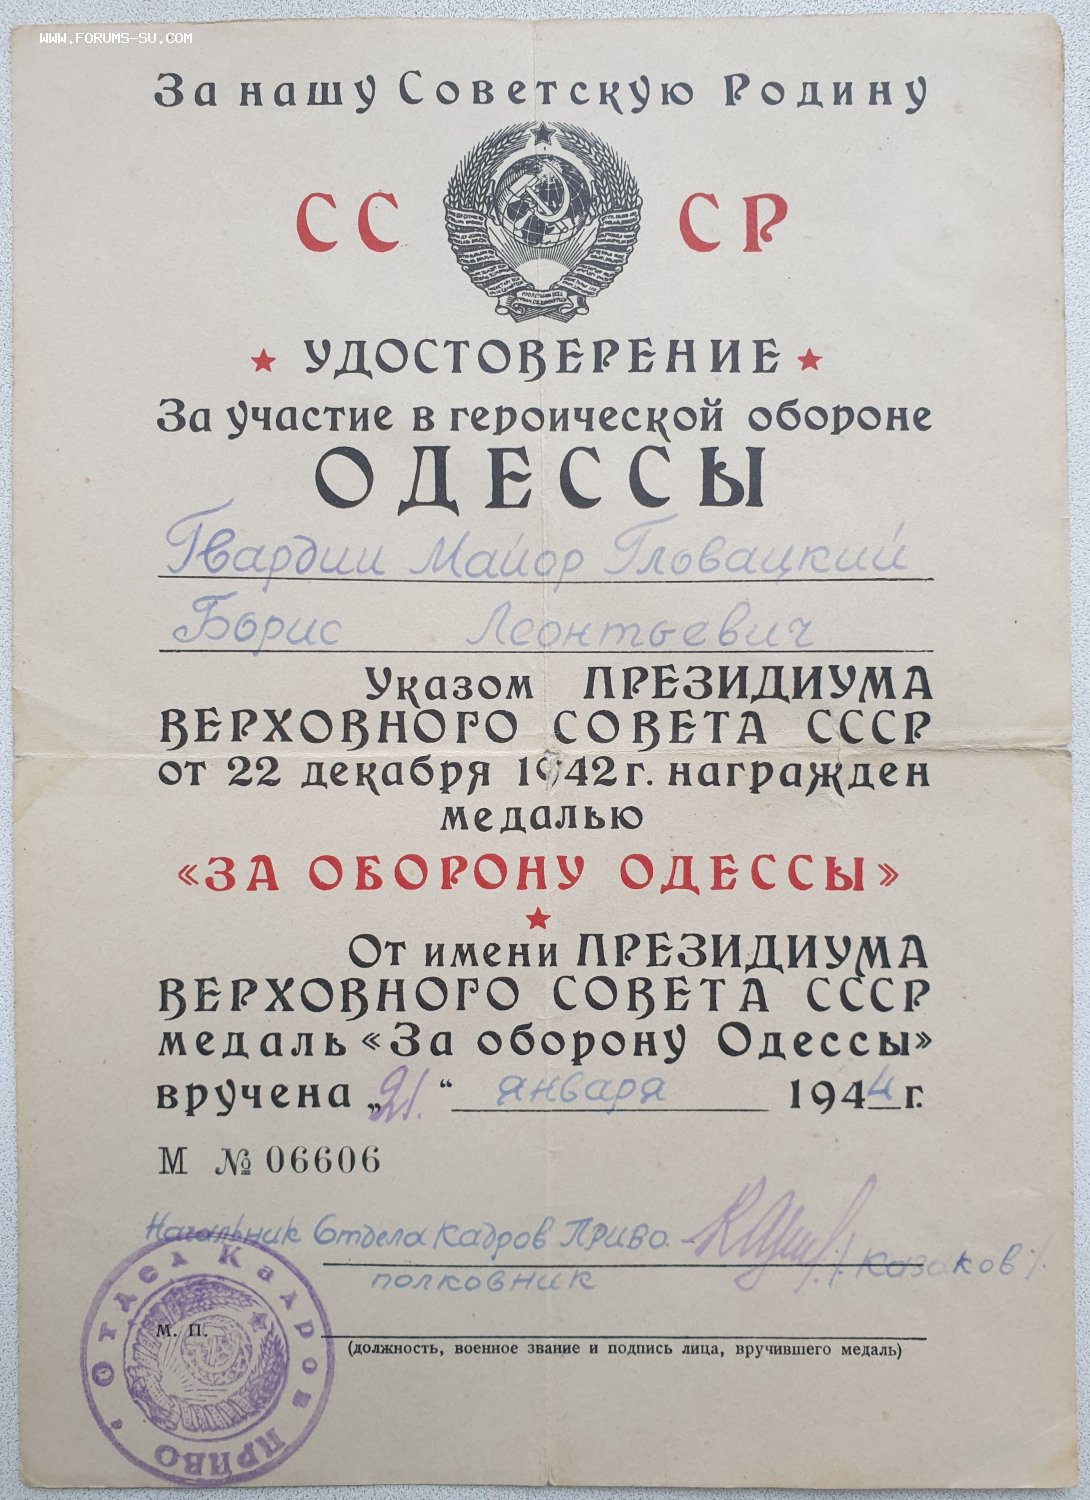 WWW.FORUMS-SU.COM
За нашу Советскую Родину
СС СР
УДОСТОВЕРЕНИЕ
За участие в героической обороне
ОДЕССЫ
Гвардии Майор Гловацкий
Борис Леонтьевич
Указом ПРЕЗИДИУМА
ВЕРХОВНОГО СОВЕТА СССР
от 22 декабря 1942 г. награжден
медалью
«ЗА ОБОРОНУ ОДЕССЫ»
От имени ПРЕЗИДИУМА
ВЕРХОВНОГО СОВЕТА СССР
медаль «За оборону Одессы»
вручена „21.“ января 1944 г.
М № 06606
Начальник Отдела Кадров ПриВО
полковник /Казаков/
М. П.
(должность, военное звание и подпись лица, вручившего медаль)
Отдел Кадров ПРИВО